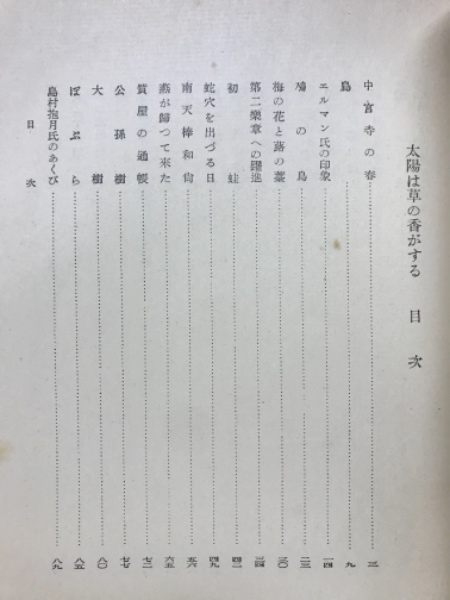 太陽は草の香がする 目次
中宮寺の春 三
島 九
エルマン氏の印象 一四
鳰の鳥 二三
梅の花と蕗の薹 三〇
第二樂章への躍進 三四
初蛙 四一
蛇穴を出づる日 四九
南天棒和尚 五六
燕が歸つて來た 六五
質屋の通帳 七二
公孫樹 七七
大樹 八〇
ぽぷら 八五
島村抱月氏のあくび 八九
目次